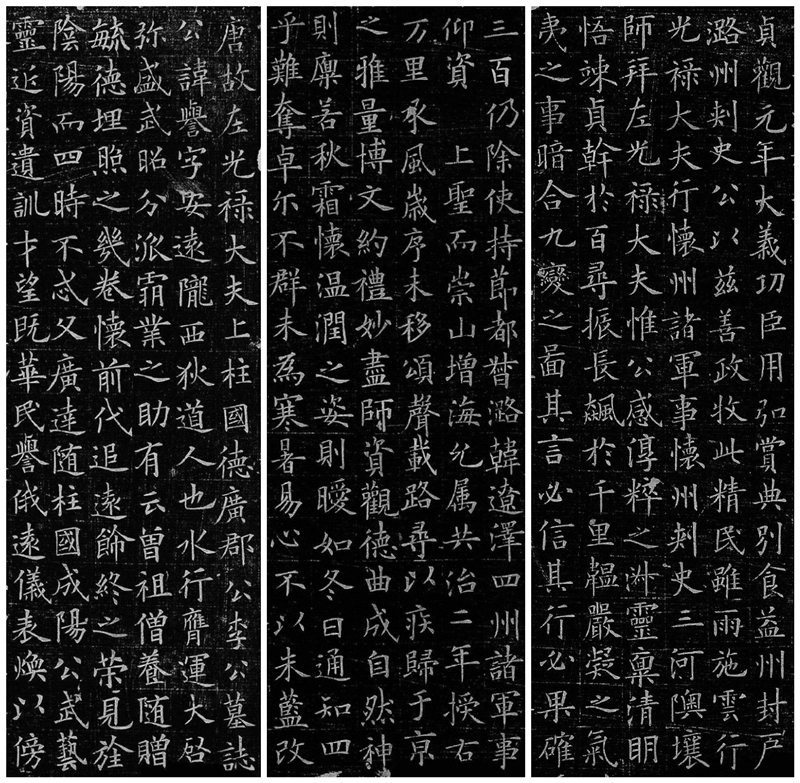 貞觀元年大義功臣用弘賞典別食益州封戶
潞州刾史公以茲善政牧此精民雖雨施雲行
光禄大夫行懷州諸軍事懷州刾史三河隩壤
師拜左光禄大夫惟公感淳粹之靈稟清明
悟竦貞幹於百尋振長飆於千里韞嚴凝之氣
夷之事暗合九變之圖其言必信其行必果確
三百仍除使持節都督潞韓遼澤四州諸軍事
仰資 上聖而崇山增海允属共治二年授右
万里承風歲序未移頌聲載路尋以疾歸于京
之雅量博文約禮妙盡師資觀德曲成自然神
則廩若秋霜懷温潤之姿則曖如冬日通知四
乎難奪卓尔不群未為寒暑易心不以朱藍改
唐故左光禄大夫上柱國德廣郡公李公墓誌
公諱譽字安遠隴西狄道人也水行膺運大啓
弥盛武昭分派霸業之助有云曾祖僧養随贈
毓德埋照之幾卷懷前代追遠飾終之榮見旌
陰陽而四時不忒父廣達随柱國成陽公武藝
靈近資遺訓才望既華民譽俄遠儀表煥以傍